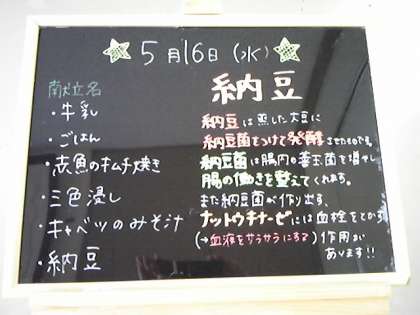 5月16日(水)
献立名
・牛乳
・ごはん
・赤魚のキムチ焼き
・三色浸し
・キャベツのみそ汁
・納豆
納豆
納豆は蒸した大豆に
納豆菌をつけて発酵させたものです。
納豆菌は腸内の善玉菌を増やし
腸の働きを整えてくれます。
また納豆菌が作り出す、
ナットウキナーゼには血栓をとかす
(→血液をサラサラにする)作用が
あります!!